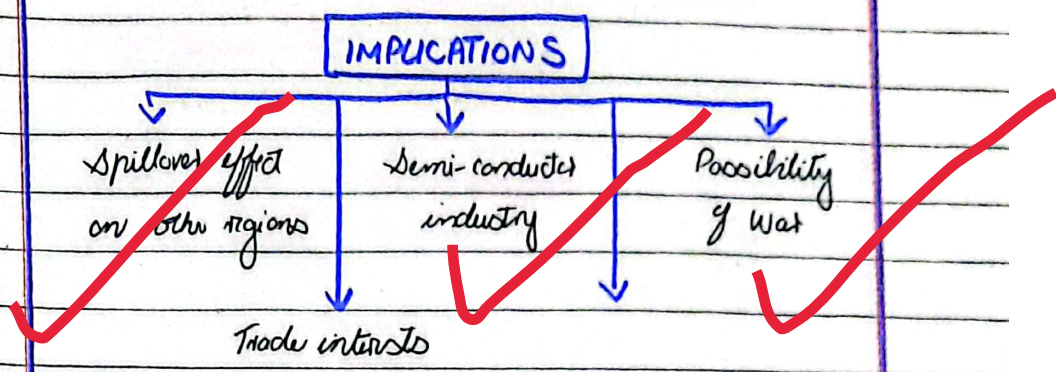 IMPLICATIONS
Spillover effect
on other regions
Semi-conductor
industry
Possibility
of war
Trade intersts